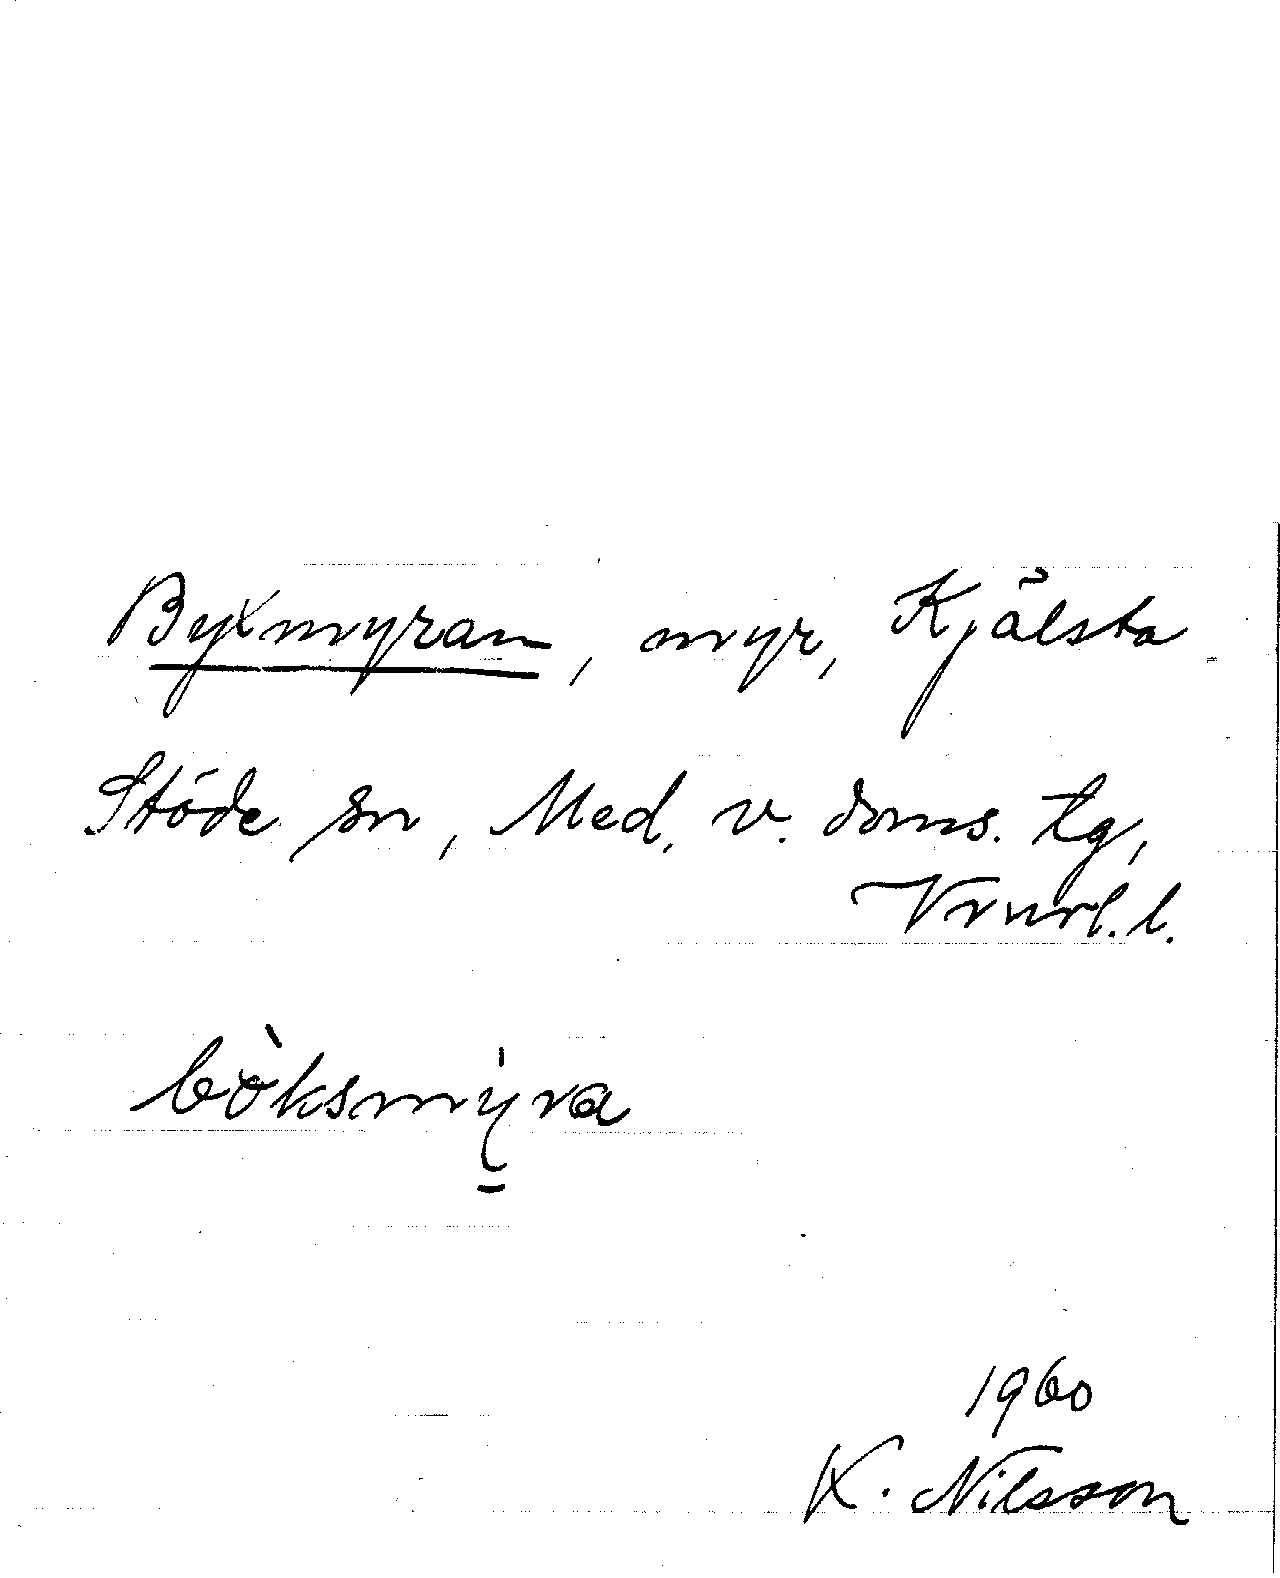 Byxmyran, myr, Kjälsta
Stöde sn, Med. v. doms. tg,
Vrnrl. l.
bòksmy̠ra
1960
K. Nilsson